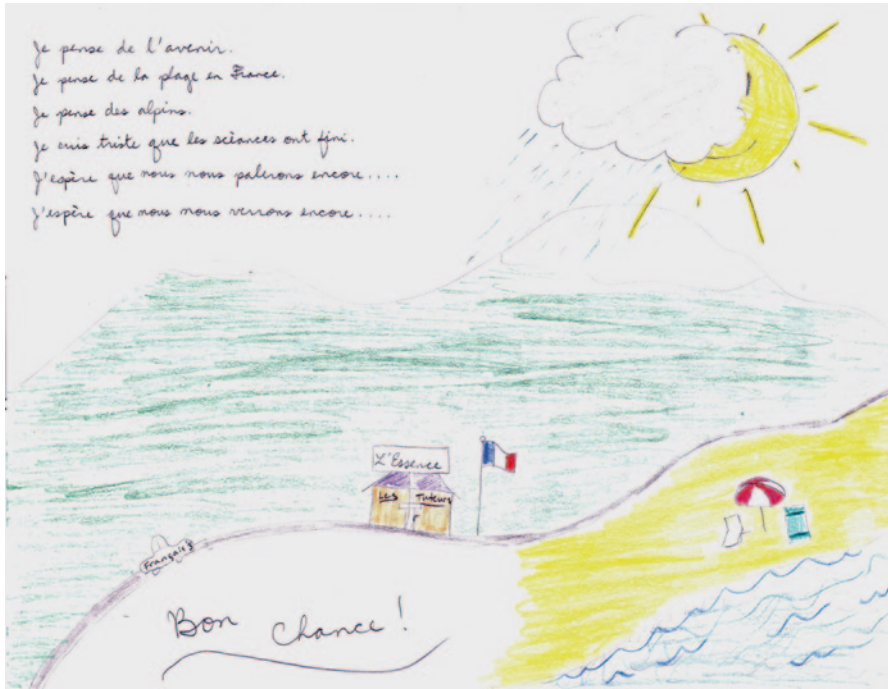 Je pense de l'avenir.
Je pense de la plage en France.
Je pense des alpins.
Je suis triste que les scéances ont fini.
J'espère que nous nous palerons encore....
J'espère que nous nous verrons encore....
L'Essence
Les Tuteurs
Français
Bon chance!